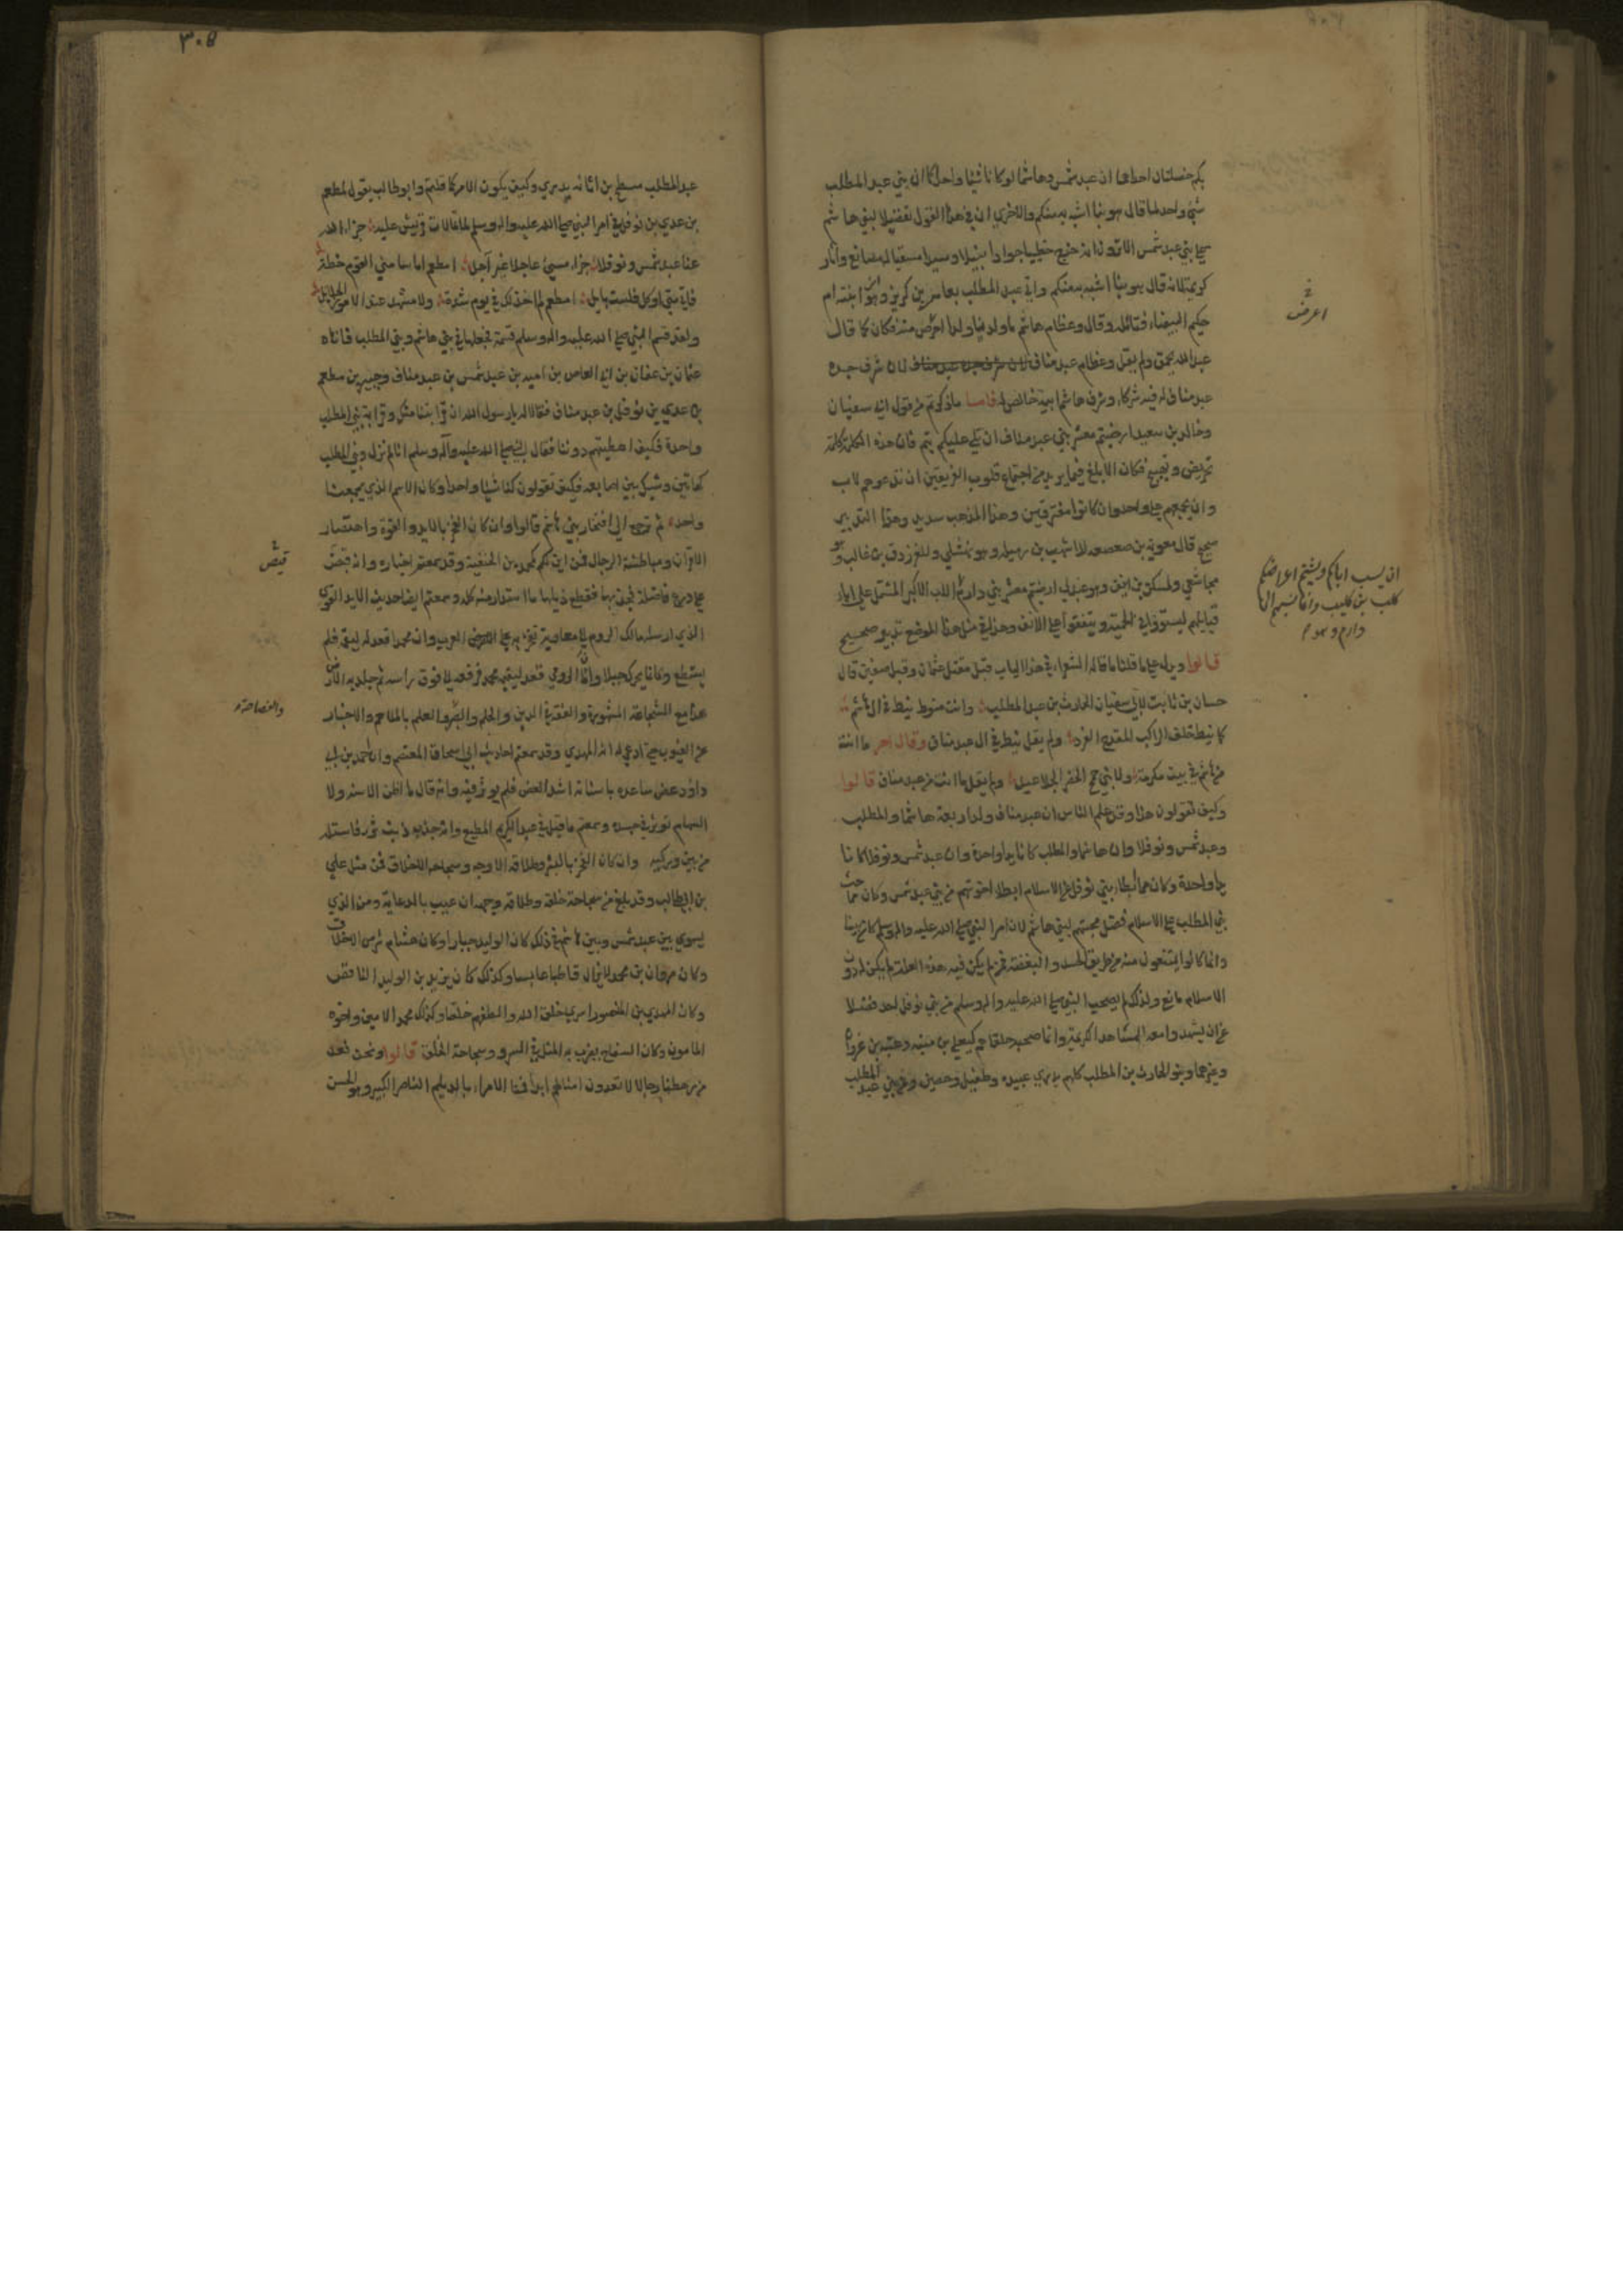 بكم خصلتان احداهما ان عبد شمس وهاشما لو كانا شيئا واحدا كما ان بني عبد المطلب
شيء واحد لما قال هو بنا اشبه به منكم والاخرى ان في هذا القول تفضيلا لبني هاشم
على بني عبد شمس الا ترون انه خرج خطيبا جوادا نبيلا وسيدا مسقيا له مصانع واثار
كريمة لانه قال هو بنا اشبه به منكم واتي عبد المطلب بعامر بن كريز وهو ابن ابنته ام
حكيم البيضاء فتأمله وقال وعظام هاشم ما ولدنا ولدا احرض منه فكان كما قال
عبد الله يحمق ولم يقل وعظام عبد مناف لان شرف جده
عبد مناف له فيه شركاء وشرف هاشم ابيه خالص له فاما ما ذكرتم من قول ابي سفيان
وخالد بن سعيد ارضيتم معشر بني عبد مناف ان تلي عليكم تيم فان هذه الكلمة كلمة
تحريض وتهييج فكان الابلغ فيما يريد من اجتماع قلوب الفريقين ان تدعوهم لاب
وان يجمعهم على واحد وان كانوا مفترقين وهذا المذهب سديد وهذا التدبير
صحيح قال معوية بن صعصعة للاشهب بن رميلة وهو نهشلي وللفرزدق بن غالب وهو
مجاشعي ولمسكين بن انيف وهو عبدلي ارضيتم معشر بني دارم
ان يسب اباكم ويشتم اعراضكم
كلب بني كليب وانما نسبهم الى
دارم وهو
الاب الاكبر المشتمل على اباء
قبائلهم ليستووا في الحمية ويتفقوا على الانف وهذا في مثل هذا الموضع تدبير صحيح
قالوا ويدل على ما قلنا ما قاله الشعراء في هذا الباب قبل مقتل عثمان وقبل صفين قال
حسان بن ثابت لابي سفيان الحارث بن عبد المطلب وانت منوط نيط في ال هاشم
كما نيط خلف الراكب القدح الفرد ولم يقل نيط في ال عبد مناف وقال اخر ما انت
من هاشم في بيت مكرمة ولا بني جمح الخضر الجلاعيد ولم يقل ما انت من عبد مناف قالوا
وكيف تقولون هذا وقد علم الناس ان عبد مناف ولد اربعة هاشما والمطلب
وعبد شمس ونوفلا وان هاشما والمطلب كانا يدا واحدة وان عبد شمس ونوفلا كانا
يدا واحدة وكان مما ابطأ ببني نوفل عن الاسلام ابطاء اخوتهم من بني عبد شمس وكان مما حث
بني المطلب على الاسلام فضل محبتهم لبني هاشم لان امر النبي صلى الله عليه واله وسلم كان بينا
وانما كانوا يمتنعون منه من طريق الحسد والبغضة فمن لم يكن فيه هذه العلة لم يكن له دون
الاسلام مانع ولذلك لم يصحب النبي صلى الله عليه واله وسلم من بني نوفل احد فضلا
عن ان يشهدوا معه المشاهد الكريمة وانما صحبه حلفاؤهم كيعلى بن منيه وعتبه بن غزوان
وغيرهما وبنو الحارث بن المطلب كلهم بدري عبيده وطفيل وحصين ومن بني عبد المطلب
اعرض
٣٠٥
عبد المطلب مسطح بن اثاثه بدري وكيف يكون الامر كما قلتم وابو طالب يقول لمطعم
بن عدي بن نوفل في امر النبي صلى الله عليه واله وسلم لما تمالات قريش عليه جزى الله
عنا عبد شمس ونوفلا جزاء مسيء عاجلا غير آجل امطعم اما سامني القوم خطة
فاني متى اوكل فلست بآيل امطعم لم اخذلك في يوم شدة ولا مشهد عند الامور الجلايل
ولقد قسم النبي صلى الله عليه واله وسلم قسمة فجعلها في بني هاشم وبني المطلب فاتاه
عثمان بن عفان بن ابي العاص بن اميه بن عبد شمس بن عبد مناف وجبير بن مطعم
بن عدي بن نوفل بن عبد مناف فقالا له يا رسول الله ان قرابتنا منك وقرابة بني المطلب
واحدة فكيف اعطيتهم دوننا فقال النبي صلى الله عليه وآله وسلم انا لم نزل وبني المطلب
كهاتين وشبك بين اصابعه فكيف تقولون كنا شيئا واحدا وكان الاسم الذي يجمعنا
واحدا ثم نرجع الى افتخار بني هاشم قالوا وان كان الفخر بالايد والقوة واهتصار
الاقران ومباطشة الرجال فمن اين لكم كمحمد بن الحنفية وقد سمعتم اخباره وانه قبض
على درع فاضلة فجذبها فقطع ذيلها ما استدار منه كله وسمعتم ايضا حديث الايد القوي
الذي ارسله ملك الروم الى معاوية يفخر به على العرب وان محمدا قعد له ليقيمه فلم
يستطع وكانما يحرك جبلا وان الرومي قعد ليقيمه محمد فرفعه الى فوق راسه ثم جلد به الارض
هذا مع الشجاعة المشهورة والفقه في الدين والحلم والصبر والعلم بالملاحم والاخبار
عن الغيوب حتى ادعي له انه المهدي وقد سمعتم احاديث ابي اسحاق المعتصم وان احمد بن ابي
داود عض ساعده باسنانه اشد العض فلم يوثر فيه وانه قال ما اظن الاسنه ولا
السهام توثر في جسده وسمعتم ما قيل في عبد الكريم المطيع وانه جذب ذنب ثور فاستله
من بين وركيه وان كان الفخر بالبشر وطلاقة الاوجه وسجاحة الاخلاق فمن مثل علي
بن ابي طالب وقد بلغ من سجاحة خلقه وطلاقة وجهه ان عيب بالدعابة ومن الذي
يسوي بين عبد شمس وبين هاشم في ذلك كان الوليد جبارا وكان هشام شرس الاخلاق
وكان مروان بن محمد لا يزال قاطبا عابسا وكذلك كان يزيد بن الوليد الناقص
وكان المهدي بن المنصور اسرى خلق الله والطفهم خلقا وكذلك محمد الامين واخوه
المامون وكان السفاح يضرب به المثل في السرو وسجاحة الخلق قالوا ونحن نعد
من رهطنا رجالا لا تعدون امثالهم ابدا فمنا الامراء بالديلم الناصر الكبير وهو الحسن
قبض
والفصاحة